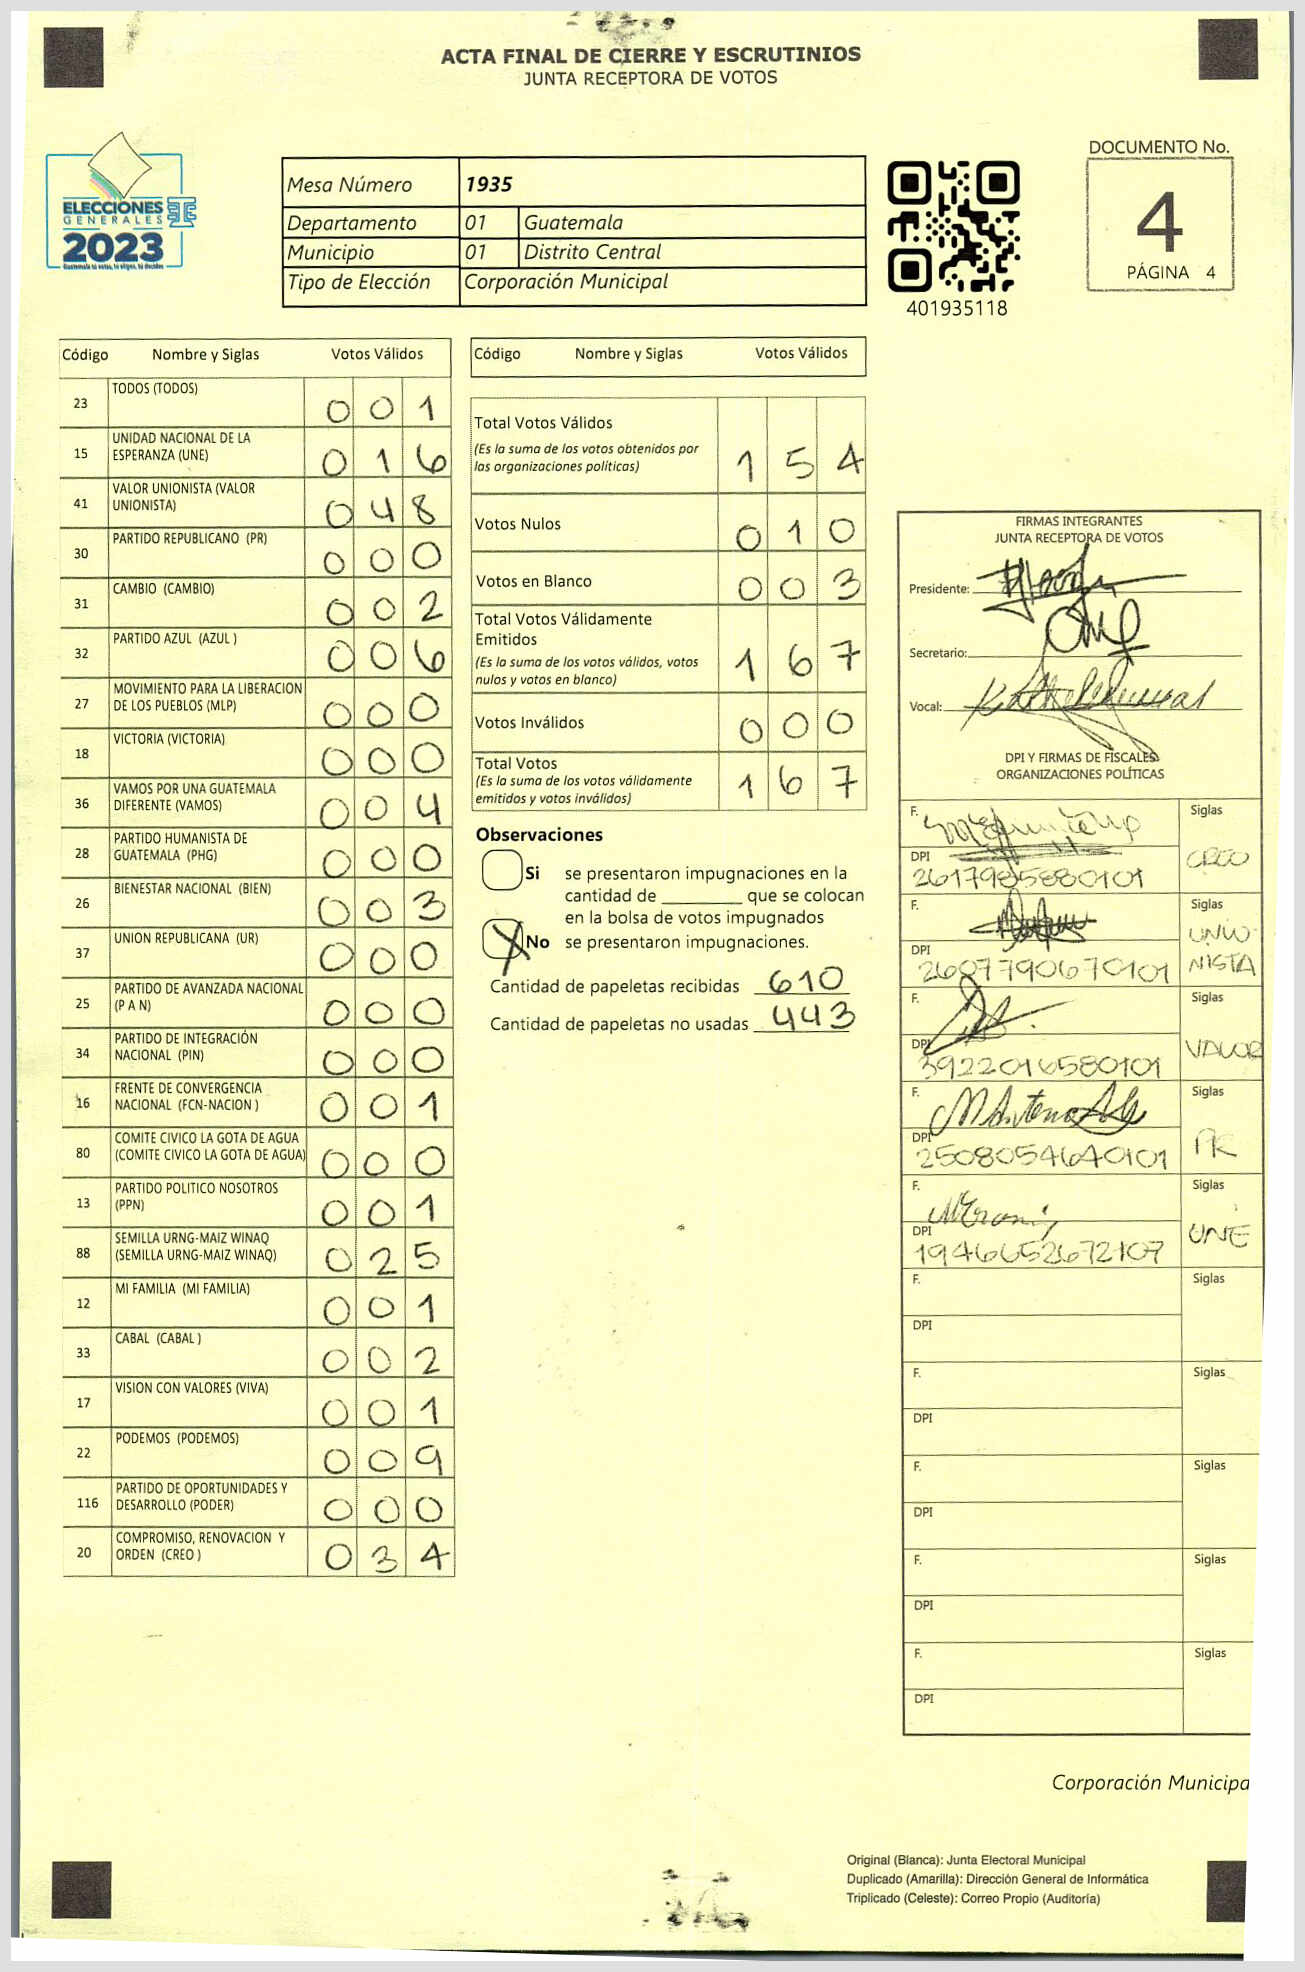 ACTA FINAL DE CIERRE Y ESCRUTINIOS
JUNTA RECEPTORA DE VOTOS
ELECCIONES
GENERALES
2023
Guatemala tú votas, tú eliges, tú decides
Mesa Número 1935
Departamento 01 Guatemala
Municipio 01 Distrito Central
Tipo de Elección Corporación Municipal
401935118
DOCUMENTO No.
4
PÁGINA 4
Código Nombre y Siglas Votos Válidos
23 TODOS (TODOS) 0 0 1
15 UNIDAD NACIONAL DE LA ESPERANZA (UNE) 0 1 6
41 VALOR UNIONISTA (VALOR UNIONISTA) 0 4 8
30 PARTIDO REPUBLICANO (PR) 0 0 0
31 CAMBIO (CAMBIO) 0 0 2
32 PARTIDO AZUL (AZUL ) 0 0 6
27 MOVIMIENTO PARA LA LIBERACION DE LOS PUEBLOS (MLP) 0 0 0
18 VICTORIA (VICTORIA) 0 0 0
36 VAMOS POR UNA GUATEMALA DIFERENTE (VAMOS) 0 0 4
28 PARTIDO HUMANISTA DE GUATEMALA (PHG) 0 0 0
26 BIENESTAR NACIONAL (BIEN) 0 0 3
37 UNION REPUBLICANA (UR) 0 0 0
25 PARTIDO DE AVANZADA NACIONAL (P A N) 0 0 0
34 PARTIDO DE INTEGRACIÓN NACIONAL (PIN) 0 0 0
16 FRENTE DE CONVERGENCIA NACIONAL (FCN-NACION ) 0 0 1
80 COMITE CIVICO LA GOTA DE AGUA (COMITE CIVICO LA GOTA DE AGUA) 0 0 0
13 PARTIDO POLITICO NOSOTROS (PPN) 0 0 1
88 SEMILLA URNG-MAIZ WINAQ (SEMILLA URNG-MAIZ WINAQ) 0 2 5
12 MI FAMILIA (MI FAMILIA) 0 0 1
33 CABAL (CABAL ) 0 0 2
17 VISION CON VALORES (VIVA) 0 0 1
22 PODEMOS (PODEMOS) 0 0 9
116 PARTIDO DE OPORTUNIDADES Y DESARROLLO (PODER) 0 0 0
20 COMPROMISO, RENOVACION Y ORDEN (CREO ) 0 3 4
Código Nombre y Siglas Votos Válidos
Total Votos Válidos 1 5 4
(Es la suma de los votos obtenidos por
las organizaciones políticas)
Votos Nulos 0 1 0
Votos en Blanco 0 0 3
Total Votos Válidamente
Emitidos 1 6 7
(Es la suma de los votos válidos, votos
nulos y votos en blanco)
Votos Inválidos 0 0 0
Total Votos 1 6 7
(Es la suma de los votos válidamente
emitidos y votos inválidos)
Observaciones
Si se presentaron impugnaciones en la
cantidad de ________ que se colocan
en la bolsa de votos impugnados
X No se presentaron impugnaciones.
Cantidad de papeletas recibidas 610
Cantidad de papeletas no usadas 443
FIRMAS INTEGRANTES
JUNTA RECEPTORA DE VOTOS
Presidente:
Secretario:
Vocal:
DPI Y FIRMAS DE FISCALES
ORGANIZACIONES POLÍTICAS
F. Siglas
DPI 2617985880101 CREO
F. Siglas
DPI 2607790670101 UNIONISTA
F. Siglas
DPI 3922016580101 VALOR
F. Siglas
DPI 2508054640101 PR
F. Siglas
DPI 1946652672107 UNE
F. Siglas
DPI
F. Siglas
DPI
F. Siglas
DPI
F. Siglas
DPI
F. Siglas
DPI
Corporación Municipa
Original (Blanca): Junta Electoral Municipal
Duplicado (Amarilla): Dirección General de Informática
Triplicado (Celeste): Correo Propio (Auditoría)